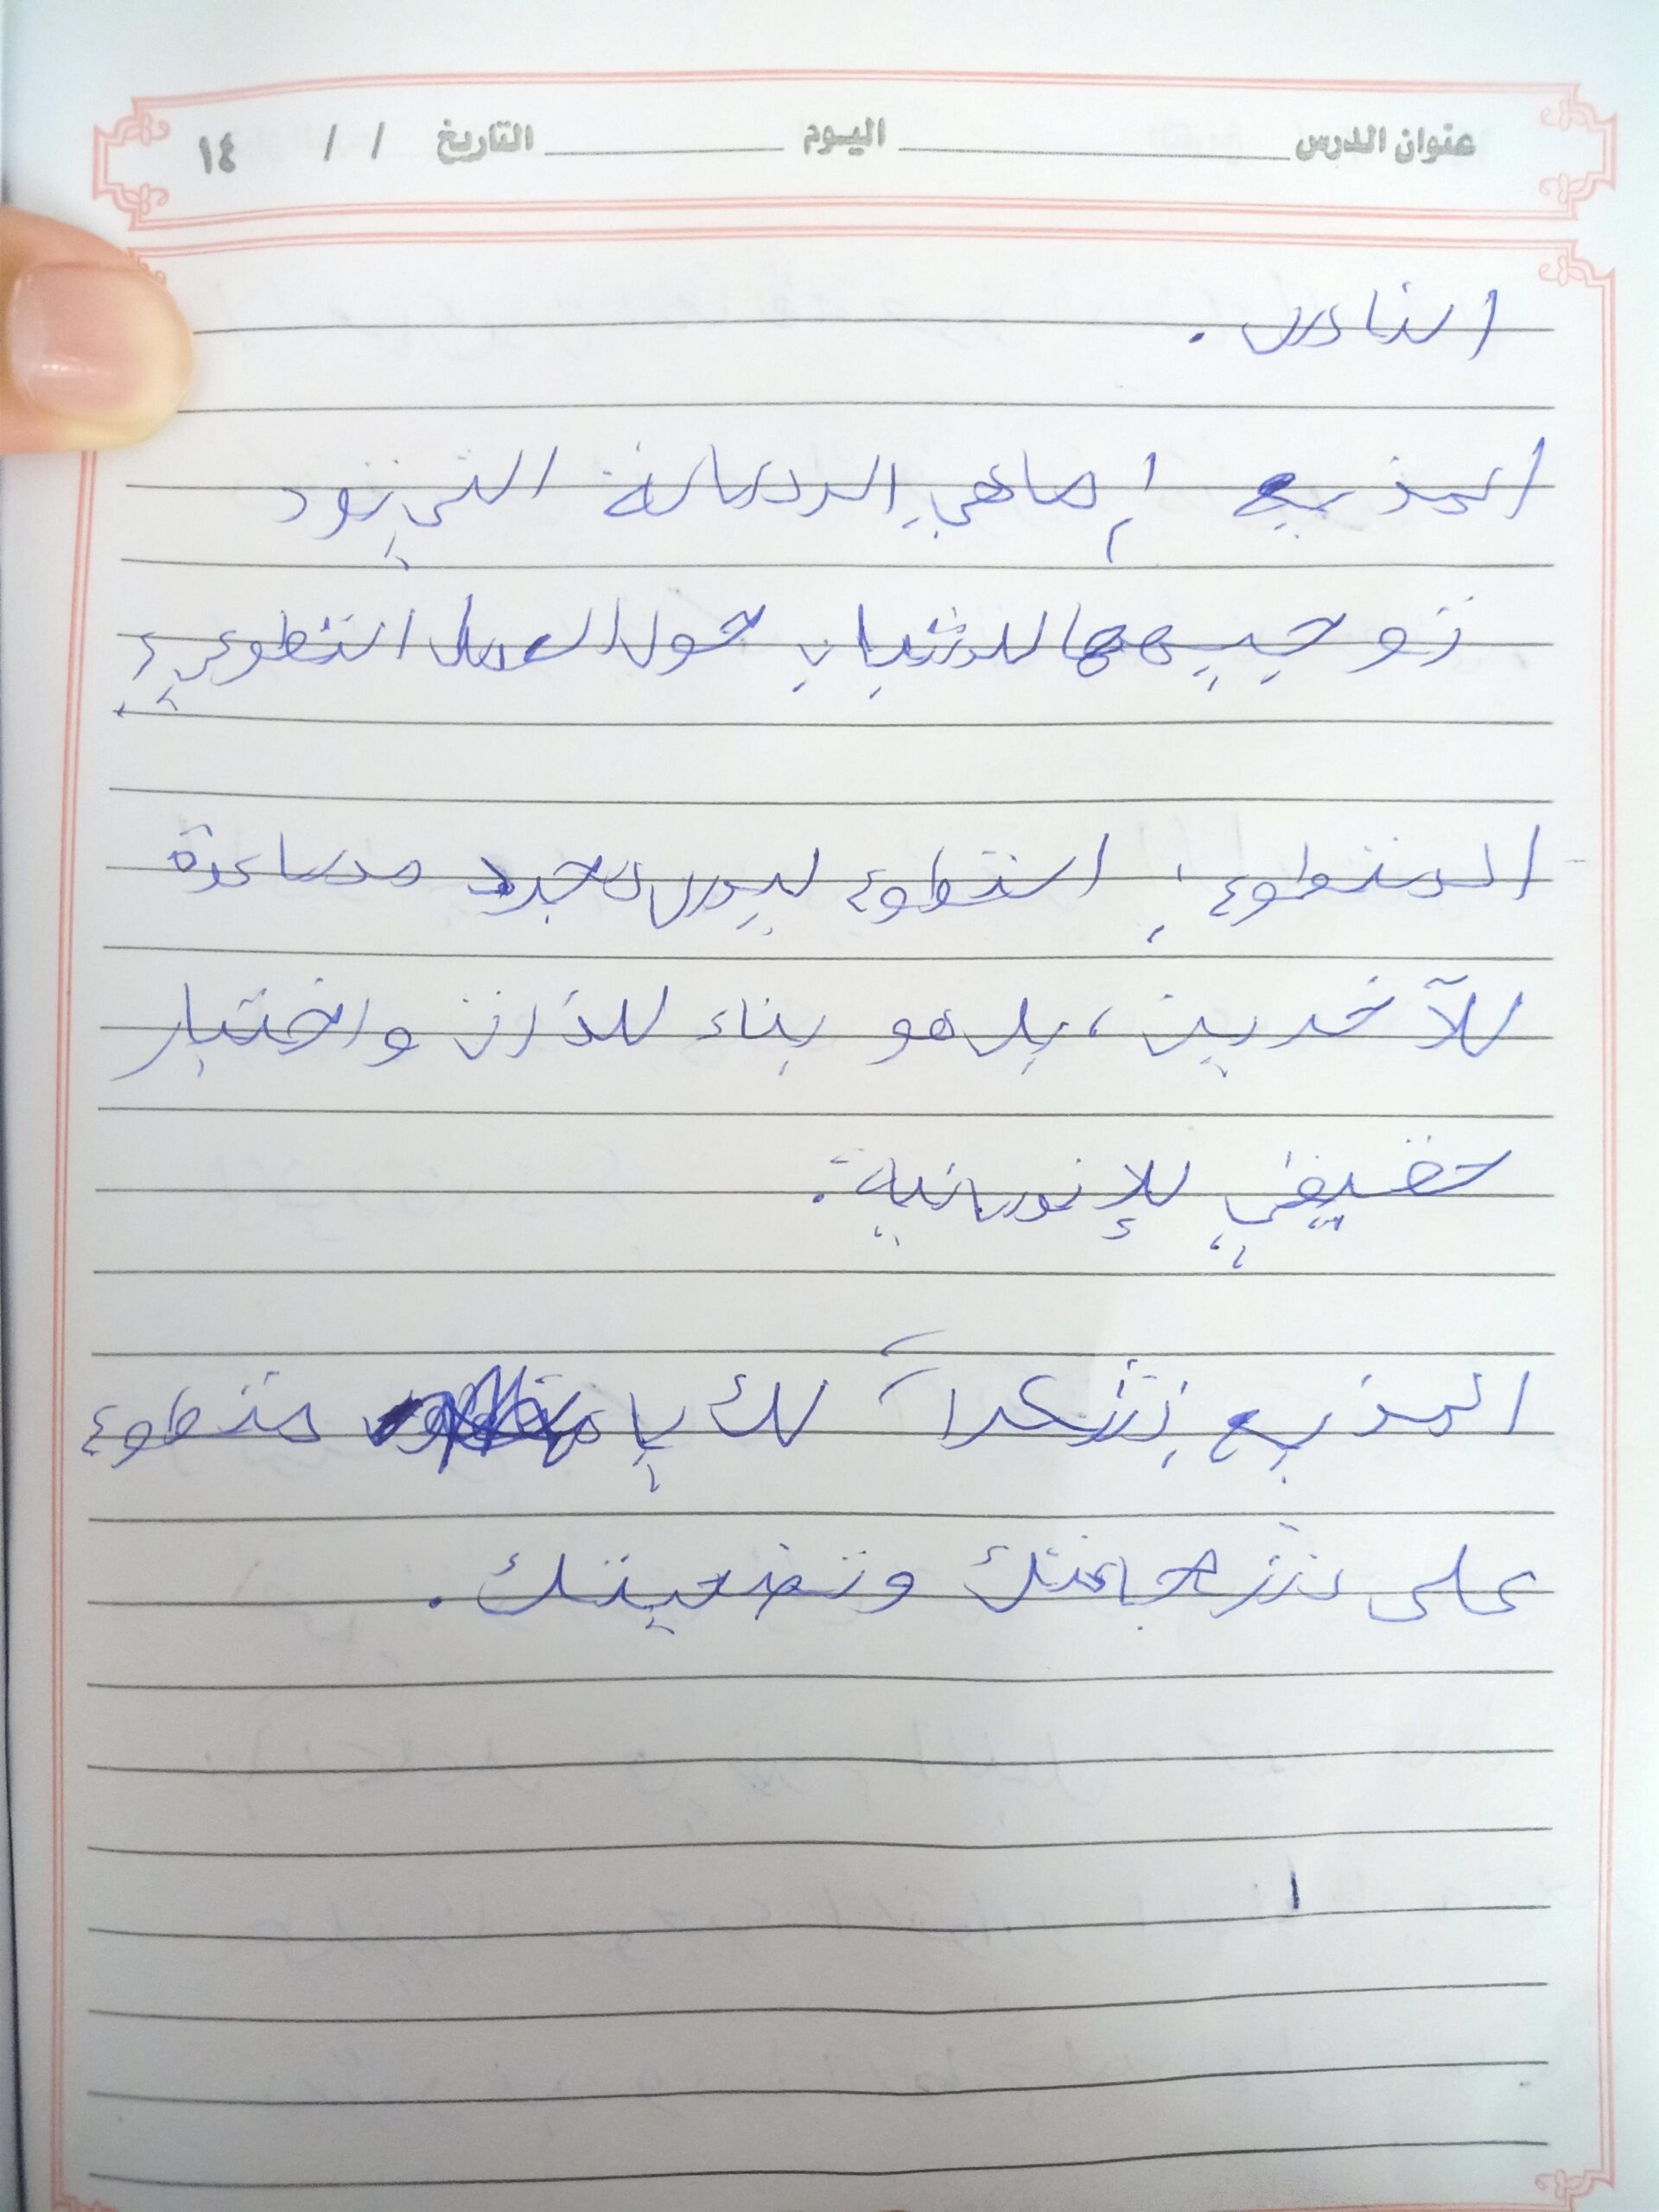 عنوان الدرس اليوم التاريخ / / ١٤
الناس.
المذيع: ما هي الرسالة التي تود
توجيهها للشباب حول العمل التطوعي؟
المتطوع: التطوع ليس مجرد مساعدة
للآخرين، بل هو بناء للذات واختبار
حقيقي للإنسانية.
المذيع: شكراً لك يا متطوع
على شجاعتك وتضحيتك.